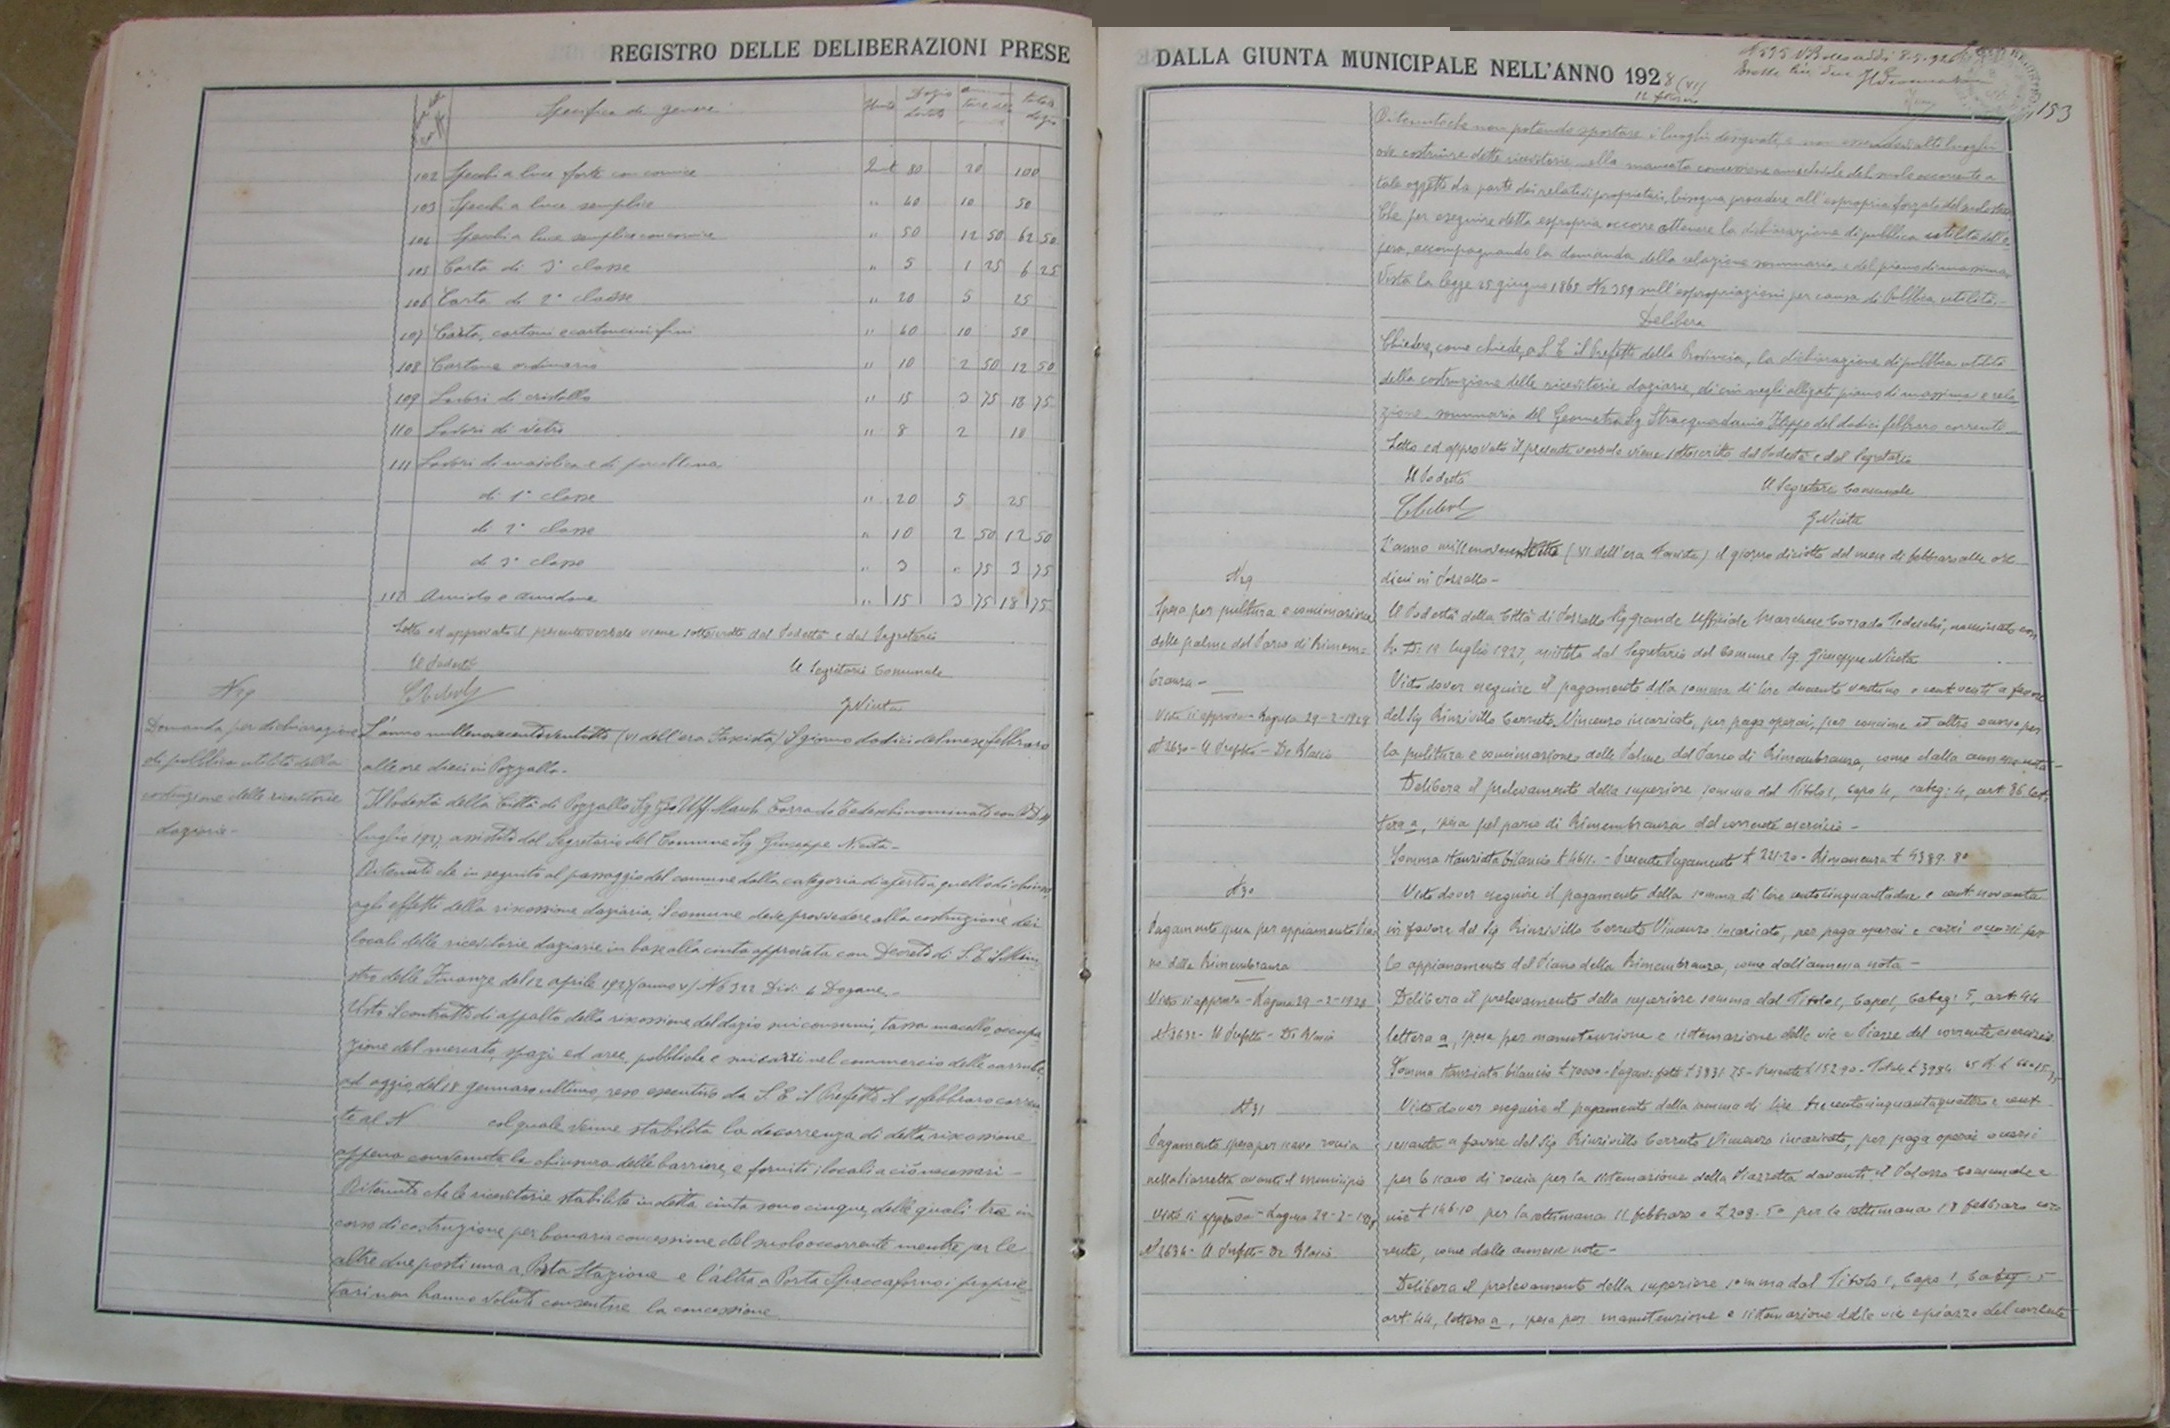 REGISTRO DELLE DELIBERAZIONI PRESE
Specifica di genere Unità Dazio totale
102 Specchi a luce forte con cornice Quint 80 20 100
103 Specchi a luce semplice " 40 10 50
104 Specchi a luce semplice con cornice " 50 12 50 62 50
105 Carta di 3ª classe " 5 1 25 6 25
106 Carta di 2ª classe " 20 5 25
107 Carta, cartoni e cartoncini fini " 40 10 50
108 Cartone ordinario " 10 2 50 12 50
109 Lavori di cristallo " 15 3 75 18 75
110 Lavori di vetro " 8 2 10
111 Lavori di maiolica e di porcellana
di 1ª classe " 20 5 25
di 2ª classe " 10 2 50 12 50
di 3ª classe " 3 " 75 3 75
112 Amido e amidone " 15 3 75 18 75
Letto ed approvato il presente verbale viene sottoscritto dal Podestà e dal Segretario
Il Podestà Il Segretario Comunale
G Nicita
Domanda per dichiarazione
di pubblica utilità della
costruzione delle ricevitorie
daziarie -
L'anno millenovecentoventotto (VI dell'era Fascista) il giorno dodici del mese febbraro
alle ore dieci in Pozzallo.
Il Podestà della Città di Pozzallo Sg Gr. Uff. March. Corrado Tedeschi nominato con R D 14
luglio 1927, assistito dal Segretario del Comune Sg. Giuseppe Nicita -
Ritenuto che in seguito al passaggio del comune dalla categoria di aperto a quello di chiuso,
agli effetti della riscossione daziaria, il comune deve provvedere alla costruzione dei
locali delle ricevitorie daziarie in base alla cinta approvata con Decreto di S. E. il Mini
stro delle Finanze del 12 aprile 1927 (anno V) No 322 Div. 6 Dogane.-
Visto il contratto di appalto della riscossione del dazio sui consumi, tassa macello, occupa
zione del mercato, spazi ed aree pubbliche e
ad oggi, del 18 gennaro ultimo, reso esecutivo da S. E il Prefetto il febbraro corren
te al N col quale venne stabilita la decorrenza di detta riscossione
appena convenuta la chiusura delle barriere, e forniti i locali a ciò necessari -
Ritenuto che le ricevitorie stabilite in detta cinta sono cinque, delle quali tre in
corso di costruzione per bonaria concessione del suolo occorrente mentre per le
altre due posti una a Porta Stazione e l'altra a Porta Spaccaforno i proprie
tari non hanno voluto consentire la concessione
DALLA GIUNTA MUNICIPALE NELL'ANNO 1928 (VI)
153
Ritenuto che non potendo spostare i luoghi designati, e non essendovi altri luoghi
ove costruire dette ricevitorie alla mancata concessione amichevole del suolo occorrente a
tale oggetto da parte dei relativi proprietari, bisogna procedere all'espropria forzata del suolo stesso
Che per eseguire detta espropria occorre ottenere la dichiarazione di pubblica utilità dell'o
pera, accompagnando la domanda della relazione sommaria e del piano di massima
Vista la legge 25 giugno 1865 No 2359 sull'espropriazioni per causa di Pubblica utilità -
Delibera
Chiedere, come chiede, a S. E il Prefetto della Provincia, la dichiarazione di pubblica utilità
della costruzione delle ricevitorie daziarie, di cui negli allegati piano di massima e rela
zione sommaria del Geometra Sg Stracquadanio Filippo del dodici febbraro corrente
Letto ed approvato il presente verbale viene sottoscritto dal Podestà e dal Segretario
Il Podestà Il Segretario Comunale
G Nicita
L'anno (VI dell'era Fascista) il giorno diciotto del mese di febbraro alle ore
dieci in Pozzallo -
N 29
Spesa per pulitura e concimazione
delle palme del Parco di Rimem=
branza -
Visto si approva - Ragusa 29-2-1928
N 2630 - Il Prefetto - De Blasio
Il Podestà della Città di Pozzallo Sig grande Ufficiale Marchese Corrado Tedeschi, nominato con
R. D. 14 luglio 1927, assistito dal Segretario del Comune Sg. Giuseppe Nicita
Visto dover eseguire il pagamento della somma di lire duecento ventuno e cent venti a favore
del Sig Rinzivillo Cerruto Vincenzo incaricato, per paga operai, per concime ed altro occorso per
la pulitura e concimazione delle Palme del Parco di Rimembranza, come dalla annessa nota -
Delibera il prelevamento della superiore somma dal Titolo 1, Capo 4, categ: 4, art 86 let=
tera a, spesa pel parco di Rimembranza del corrente esercizio -
Somma stanziata bilancio £ 4611. - Presente Pagamento £ 221.20 - Rimanenza £ 4389.80
N 30
Pagamento spesa per appianamento Pia
no della Rimembranza
Visto si approva - Ragusa 29-2-1928
N 2632 - Il Prefetto - De Blasio
Visto dover eseguire il pagamento della somma di lire centocinquantadue e cent novanta
in favore del Sig Rinzivillo Cerruto Vincenzo incaricato, per paga operai e carri occorsi per
lo appianamento del Piano della Rimembranza, come dall'annessa nota -
Delibera il prelevamento della superiore somma dal Titolo 1, Capo 1, Categ: 5, art 44
lettera a, spesa per manutenzione e sistemazione delle vie e Piazze del corrente esercizio
Somma stanziata bilancio £ 70000 - Pagam. fatti £ 3831.75 - Presente £ 152.90 - Totale £ 3984.65
N 31
Pagamento spesa per scavo roccia
nella Piazzetta avanti il Municipio
Visto si approva - Ragusa 29-2-1928
N 2634 - Il Prefetto - De Blasio
Visto dover eseguire il pagamento della somma di lire trecentocinquantaquattro e cent
sessanta a favore del Sig Rinzivillo Cerruto Vincenzo incaricato, per paga operai occorsi
per lo scavo di roccia per la sistemazione della Piazzetta davanti il Palazzo Comunale e
cioè £ 146.10 per la settimana 11 febbraro e £ 208.50 per la settimana 18 febbraro cor
rente, come dalle annesse note -
Delibera il prelevamento della superiore somma dal Titolo 1, Capo 1, Categ. 5
art 44, lettera a, spesa per manutenzione e sistemazione delle vie e piazze del corrente